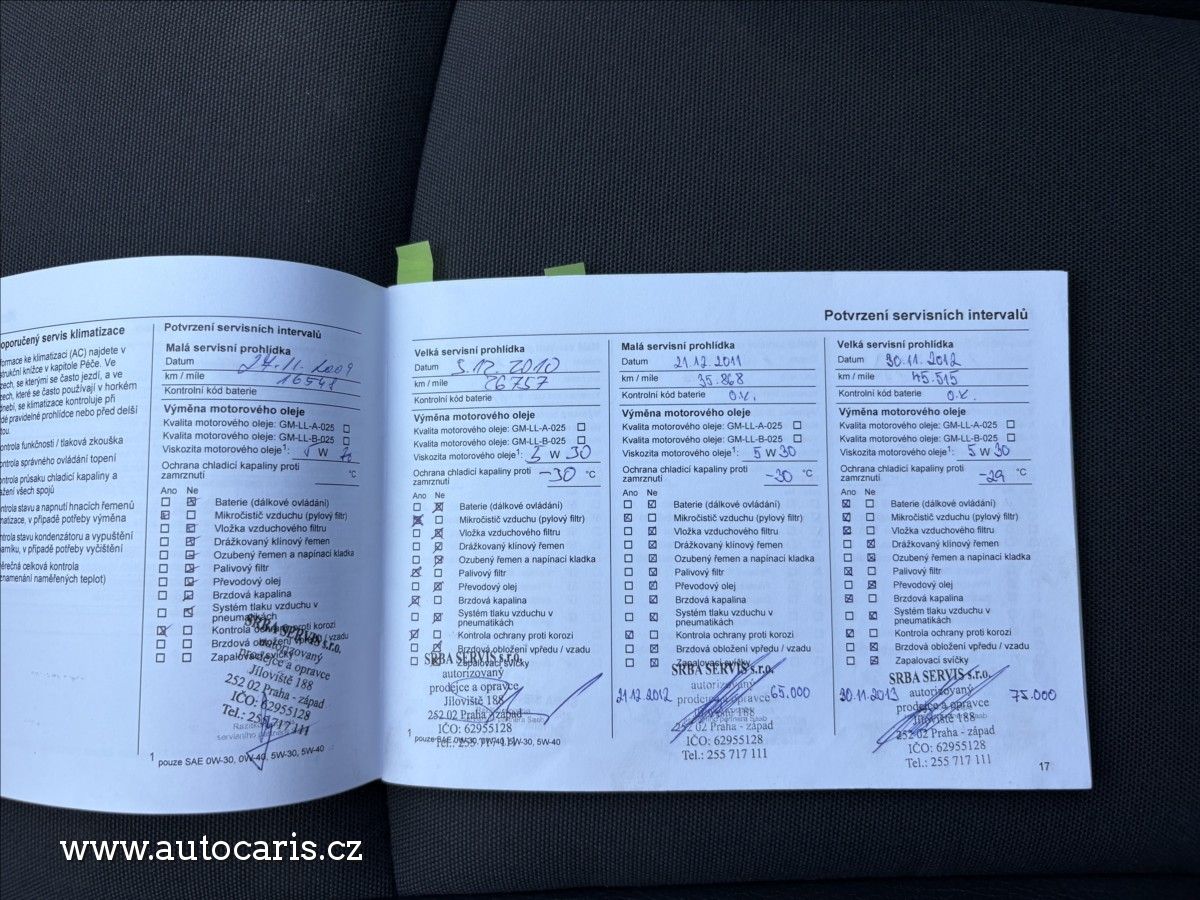 oporučený servis klimatizace
formace ke klimatizaci (AC) najdete v
strukční knížce v kapitole Péče. Ve
zech, se kterými se často jezdí, a ve
zech, které se často používají v horkém
dnebí, se klimatizace kontroluje při
dé pravidelné prohlídce nebo před delší
tou.
ontrola funkčnosti / tlaková zkouška
ontrola správného ovládání topení
ontrola průsaku chladicí kapaliny a
ažení všech spojů
ontrola stavu a napnutí hnacích řemenů
matizace, v případě potřeby výměna
ontrola stavu kondenzátoru a vypuštění
arníku, v případě potřeby vyčištění
ěrečná celková kontrola
znamenání naměřených teplot)
Potvrzení servisních intervalů
Malá servisní prohlídka
Datum 27.11.2009
km / míle 16541
Kontrolní kód baterie
Výměna motorového oleje
Kvalita motorového oleje: GM-LL-A-025
Kvalita motorového oleje: GM-LL-B-025
Viskozita motorového oleje1: 5 W 30
Ochrana chladicí kapaliny proti
zamrznutí °C
Ano Ne
Baterie (dálkové ovládání)
Mikročistič vzduchu (pylový filtr)
Vložka vzduchového filtru
Drážkovaný klínový řemen
Ozubený řemen a napínací kladka
Palivový filtr
Převodový olej
Brzdová kapalina
Systém tlaku vzduchu v
pneumatikách
Kontrola ochrany proti korozi
Brzdová obložení vpředu / vzadu
Zapalovací svíčky
SRBA SERVIS s.r.o.
autorizovaný
prodejce a opravce
Jíloviště 188
252 02 Praha - západ
IČO: 62955128
Tel.: 255 717 111
1 pouze SAE 0W-30, 0W-40, 5W-30, 5W-40
Potvrzení servisních intervalů
Velká servisní prohlídka
Datum 3.12.2010
km / míle 26757
Kontrolní kód baterie
Výměna motorového oleje
Kvalita motorového oleje: GM-LL-A-025
Kvalita motorového oleje: GM-LL-B-025
Viskozita motorového oleje1: 5 W 30
Ochrana chladicí kapaliny proti
zamrznutí -30 °C
Ano Ne
Baterie (dálkové ovládání)
Mikročistič vzduchu (pylový filtr)
Vložka vzduchového filtru
Drážkovaný klínový řemen
Ozubený řemen a napínací kladka
Palivový filtr
Převodový olej
Brzdová kapalina
Systém tlaku vzduchu v
pneumatikách
Kontrola ochrany proti korozi
Brzdová obložení vpředu / vzadu
Zapalovací svíčky
SRBA SERVIS s.r.o.
autorizovaný
prodejce a opravce
Jíloviště 188
252 02 Praha - západ
IČO: 62955128
Tel.: 255 717 111
1 pouze SAE 0W-30, 0W-40, 5W-30, 5W-40
Malá servisní prohlídka
Datum 21.12.2011
km / míle 35.868
Kontrolní kód baterie O.K.
Výměna motorového oleje
Kvalita motorového oleje: GM-LL-A-025
Kvalita motorového oleje: GM-LL-B-025
Viskozita motorového oleje1: 5 W 30
Ochrana chladicí kapaliny proti
zamrznutí -30 °C
Ano Ne
Baterie (dálkové ovládání)
Mikročistič vzduchu (pylový filtr)
Vložka vzduchového filtru
Drážkovaný klínový řemen
Ozubený řemen a napínací kladka
Palivový filtr
Převodový olej
Brzdová kapalina
Systém tlaku vzduchu v
pneumatikách
Kontrola ochrany proti korozi
Brzdová obložení vpředu / vzadu
Zapalovací svíčky
SRBA SERVIS s.r.o.
autorizovaný
21.12.2012 prodejce a opravce 65.000
Jíloviště 188
252 02 Praha - západ
IČO: 62955128
Tel.: 255 717 111
Velká servisní prohlídka
Datum 30.11.2012
km / míle 45.515
Kontrolní kód baterie O.K.
Výměna motorového oleje
Kvalita motorového oleje: GM-LL-A-025
Kvalita motorového oleje: GM-LL-B-025
Viskozita motorového oleje1: 5 W 30
Ochrana chladicí kapaliny proti
zamrznutí -29 °C
Ano Ne
Baterie (dálkové ovládání)
Mikročistič vzduchu (pylový filtr)
Vložka vzduchového filtru
Drážkovaný klínový řemen
Ozubený řemen a napínací kladka
Palivový filtr
Převodový olej
Brzdová kapalina
Systém tlaku vzduchu v
pneumatikách
Kontrola ochrany proti korozi
Brzdová obložení vpředu / vzadu
Zapalovací svíčky
SRBA SERVIS s.r.o.
autorizovaný
30.11.2013 prodejce a opravce 75.000
Jíloviště 188
252 02 Praha - západ
IČO: 62955128
Tel.: 255 717 111
17
www.autocaris.cz